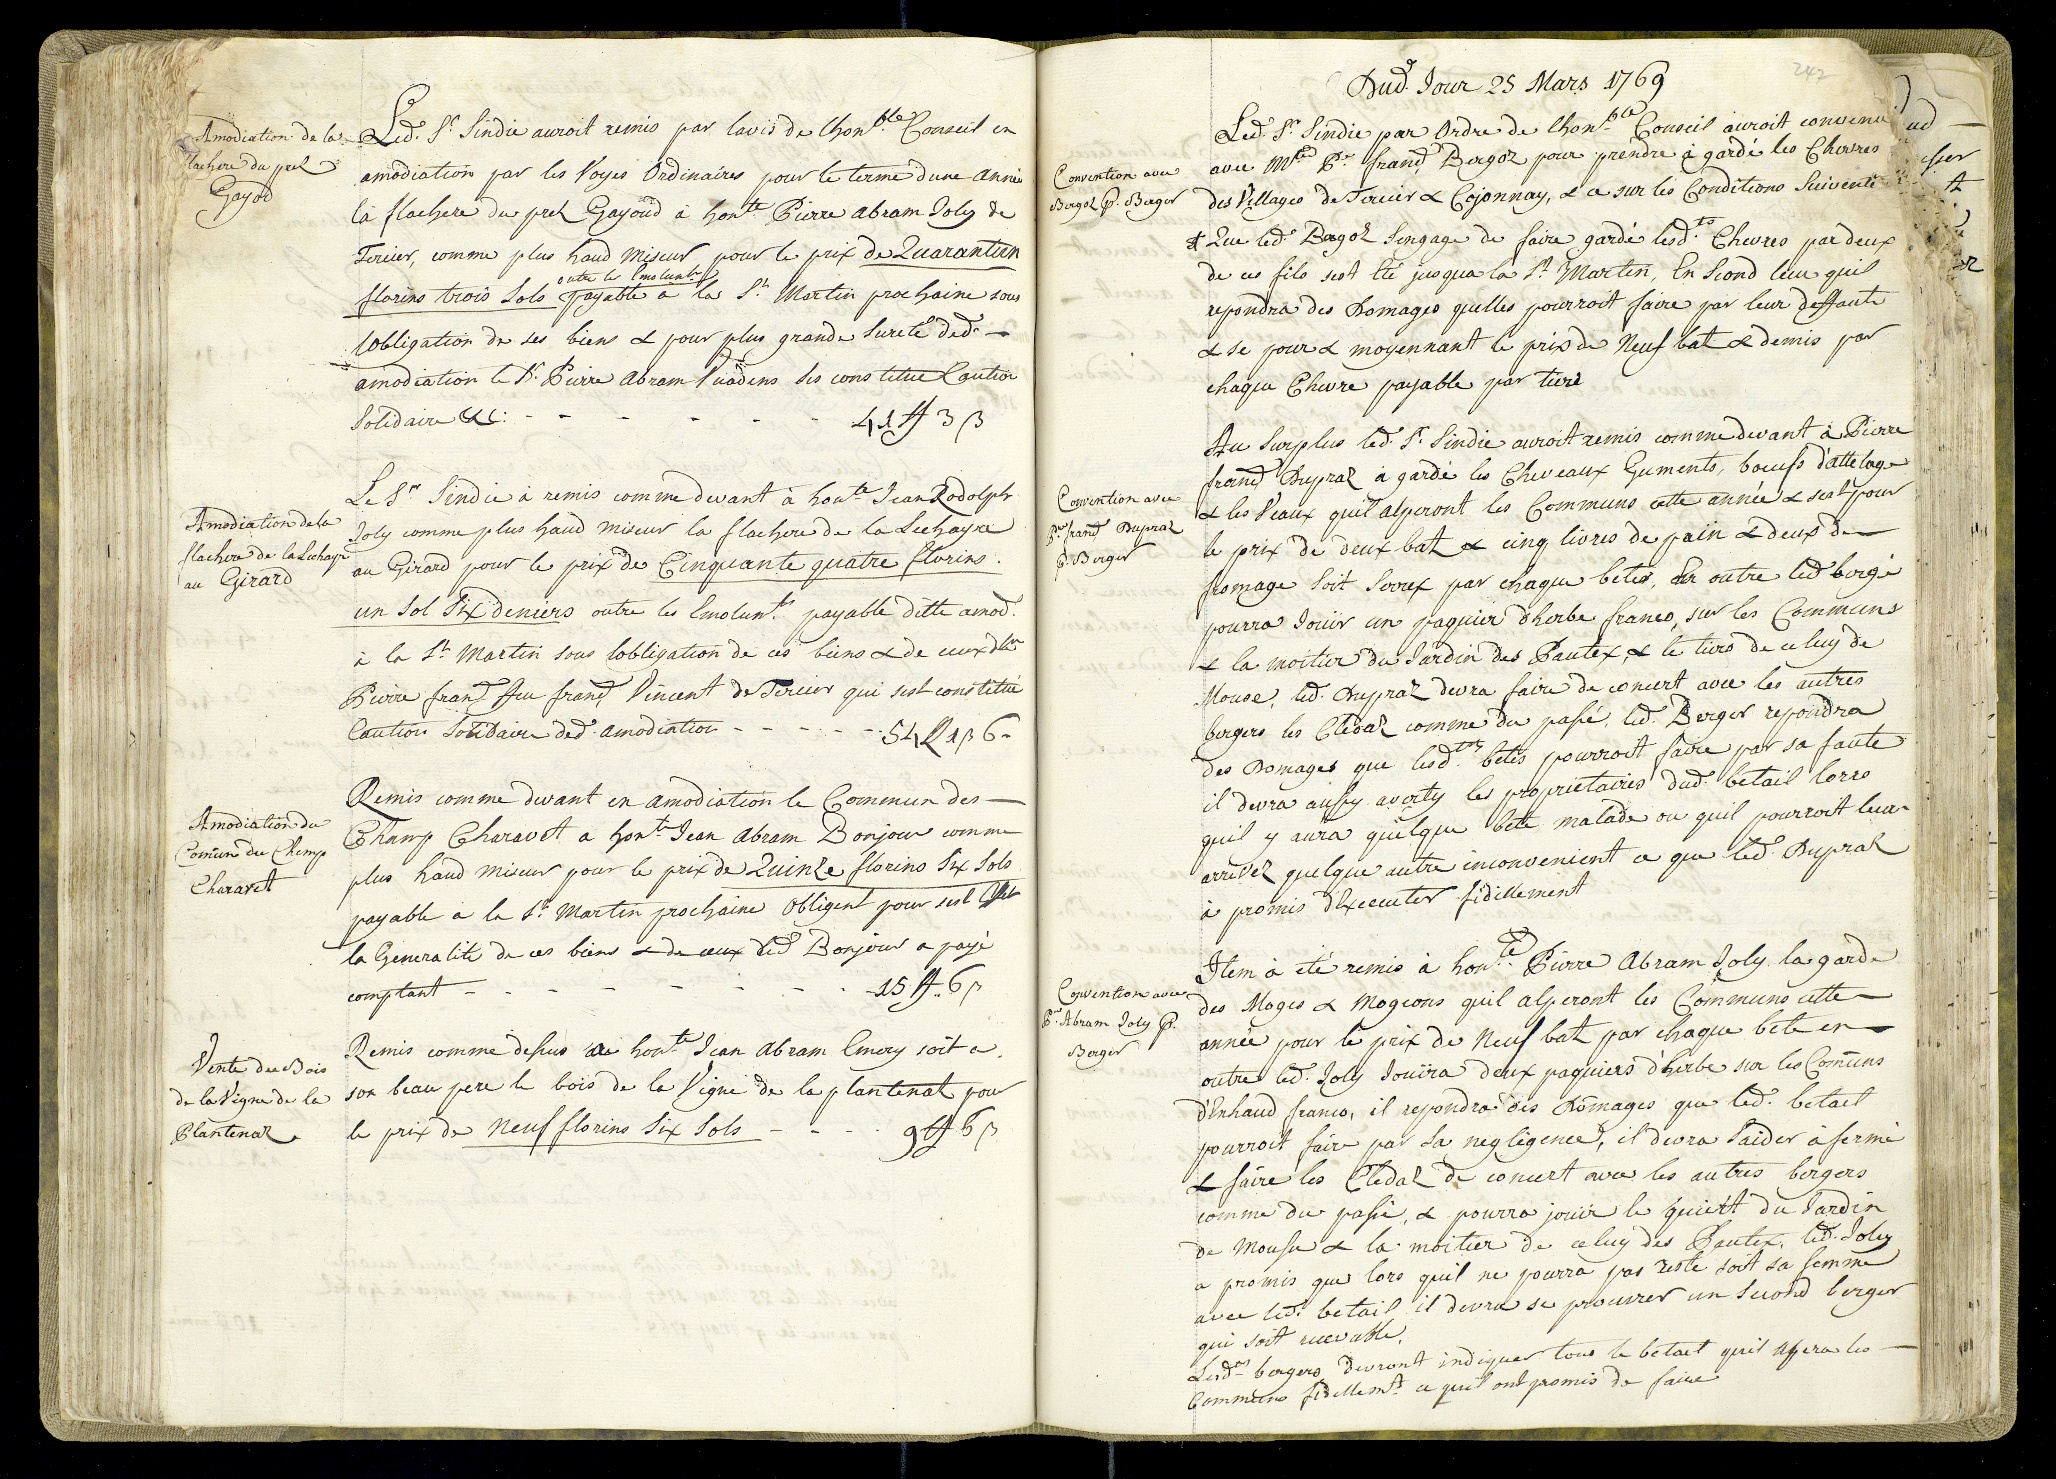 Amodiation de la
flachere du prel
Gayod
Led.^t S^r Sindic auroit remis par lavis de lhon.^ble Conseil en
amodiation par les Voyes Ordinaires pour le terme dune année
la flachere du prel Gayoud à hon^te Pierre Abram Joly de
Tercier, comme plus haud miseur pour le prix de Quarantun
outre les Emolum^ts
florins trois Sols payable à la S^t Martin prochaine sous
lobligation de ses biens & pour plus grande Sureté ded.^e
amodiation le S^r Pierre Abram Puadens ses constitué Caution
Solidaire &c: - - - - - - 41 ff 3 β
Amodiation de la
flachere de la Lechayre
au Girard
Le S^r Sindic à remis comme devant à hon^te Jean Rodolph
Joly comme plus haud miseur la flachere de la Lechayre
au Girard pour le prix de Cinquante quatre florins
un Sol Six deniers outre les Emolum^ts payable ditte amod.
à la S^t Martin sous lobligation de ces biens & de ceux d'hon
Pierre franç^s ffeu franç^s Vincent de Tercier qui sest constitué
Caution Solidaire ded.^e amodiation - - - - - 54 ff 1 β 6 -
Amodiation du
Comũn du Champ
Charavet
Remis comme devant en amodiation le Commun des
Champ Charavet a hon^te Jean Abram Bonjour comme
plus haud miseur pour le prix de Quinze florins Six Sols
payable a la S^t Martin prochaine obligent pour sest effet
la Generalité de ces biens & de ceux led.^t Bonjour a payé
comptant - - - - - - - - 15 ff. 6 β
Vente du Bois
de la Vigne de la
Plantenaz
Remis comme dessus a hon^te Jean Abram Emery soit a
son beau pere le bois de la Vigne de la plantenat pour
le prix de Neuf florins Six Sols - - - - 9 ff 6 β
242
Dud.^t Jour 25 Mars 1769
Convention avec
Bergoz p.^r Berger
Led.^t S^r Sindic par Ordre de lhon^ble Conseil auroit convenu
avec M^tre P^re franç^s Bergoz pour prendre à gardé les Chevres
des Villages de Tercier & Cojonnay, & ce sur les Conditions Suivente
Que led.^t Bergoz Sengage de faire gardé lesd.^tes Chevres par deux
de ces fils sest Eté jusqua la S^t Martin, En Second lieu quil
repondra des Domages quelles pourroit faire par leur deffaute
& se pour & moyennant le prix de Neuf bat & demis par
chaque Chevre payable par tiers
Convention avec
P^re franç^s Dupraz
p.^r Berger
Au Surplus led.^t S^r Sindic auroit remis comme devant à Pierre
franç^s Dupraz a gardé les Cheveaux Guments, boeufs d'attelage
& les Veaux quil alperont les Communs cette année & sest pour
le prix de deux bat & cinq livres de pain & deux de
fromage Soit Serrex par chaque betes, En outre led.^t bergé
pourra Jouir un paquier dherbe franco, sur les Communs
& la moitier du Jardin des Pautex, & le tiers de celuy de
Mouse, led.^t Dupraz devra faire de concert avec les autres
bergers les Cledaz comme du passé, led.^t Berger repondra
des Domages que lesd.^tes betes pourroit faire par sa faute
il devra aussy averty les proprietaires dud.^t betail lorrs
quil y aura quelque bette malade ou quil pourroit leur
arrivez quelque autre inconvenient ce que led.^t Dupraz
à promis dExecuter fidellement
Convention avec
P^re Abram Joly p.^r
Berger
Item à eté remis à hon^te Pierre Abram Joly la garde
des Moges & Mogeons quil alperont les Communs cette
année pour le prix de Neuf bat par chaque bete en
outre led.^t Joly Jouira deux paquiers d'herbe sur les Comũns
d'Enhaud franco, il repondra des Domages que led.^t betail
pourroit faire par Sa negligence, il devra Saider à fermé
& faire les Cledaz de concert avec les autres bergers
comme du passé, & pourra jouir le quiert du Jardin
de Mouse & la moitier de celuy des Pautex, led.^t Joly
a promis que lors quil ne pourra pas resté soit sa femme
avec led.^t betail il devra se procurer un Second berger
qui soit recevable.
Lesd.^ts bergers devront indiquer tous le betail quil alpera les
Communs fidellem^t ce quil ont promis de faire